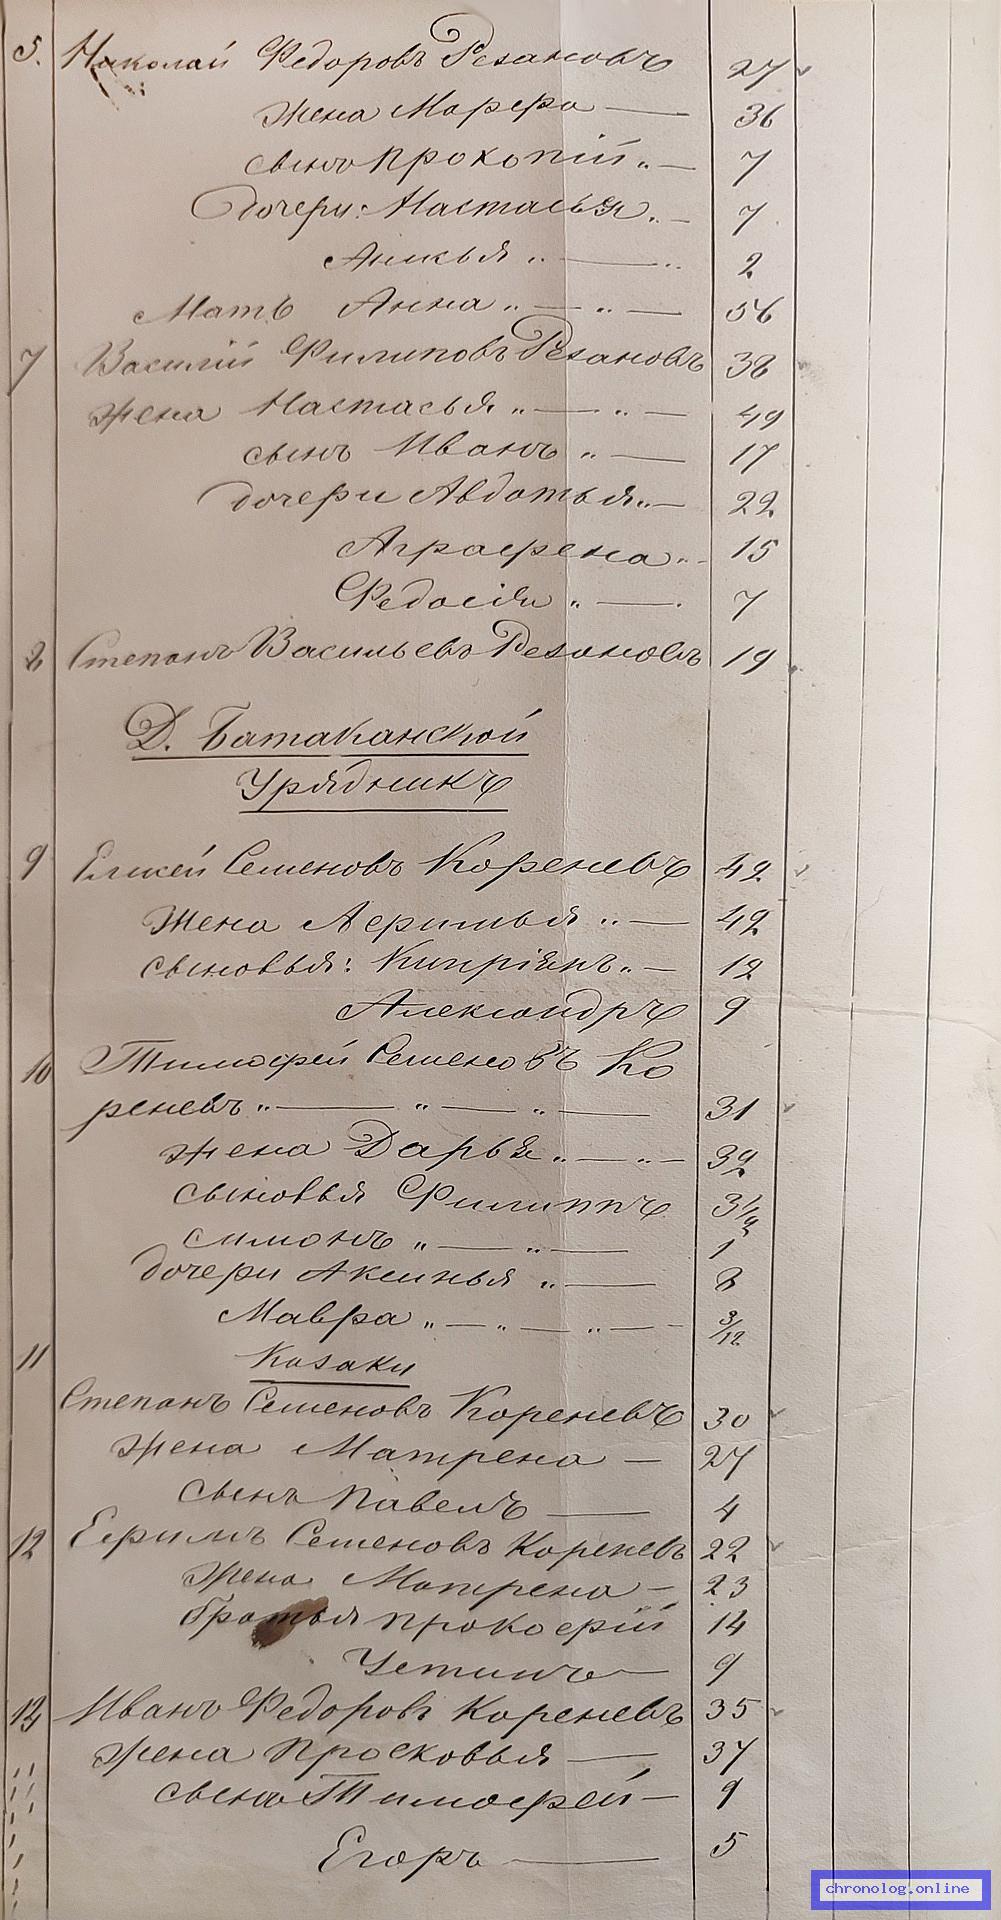 5. Николай Федоровъ Резановъ 27
жена Марфа — 36
сынъ Прокопій „ — 7
дочери: Настасья „ — 7
Анисья „ — „ 2
Мать Анна „ — „ — 56
7 Василій Филиповъ Резановъ 38
жена Настасья „ — „ — 49
сынъ Иванъ „ — 17
дочери Авдотья „ — 22
Аграфена „ - 15
Федосія „ — 7
8 Степанъ Васильевъ Резановъ 19
Д. Батаканской
Урядникъ
9 Елисей Семеновъ Кореневъ 42
Жена Афимья „ — 42
сыновья: Кипріянъ „ — 12
Александръ 9
10 Тимофей Семеновъ Ко
реневъ „ — „ — „ — 31
жена Дарья „ — „ — 32
сыновья Филиппъ 3 1/2
Симонъ „ — „ — 1
дочери Аксинья „ — 8
Мавра „ — „ — „ — 3/12
11 Козаки
Степанъ Семеновъ Кореневъ 30
жена Матрена — 27
сынъ Павелъ — 4
12 Ефимъ Семеновъ Кореневъ 22
жена Матрена — 23
братья Прокофій 14
Устинъ — 9
13 Иванъ Федоровъ Кореневъ 35
жена Просковья — 37
сынъ Тимофей — 9
Егоръ — 5
chronolog.online